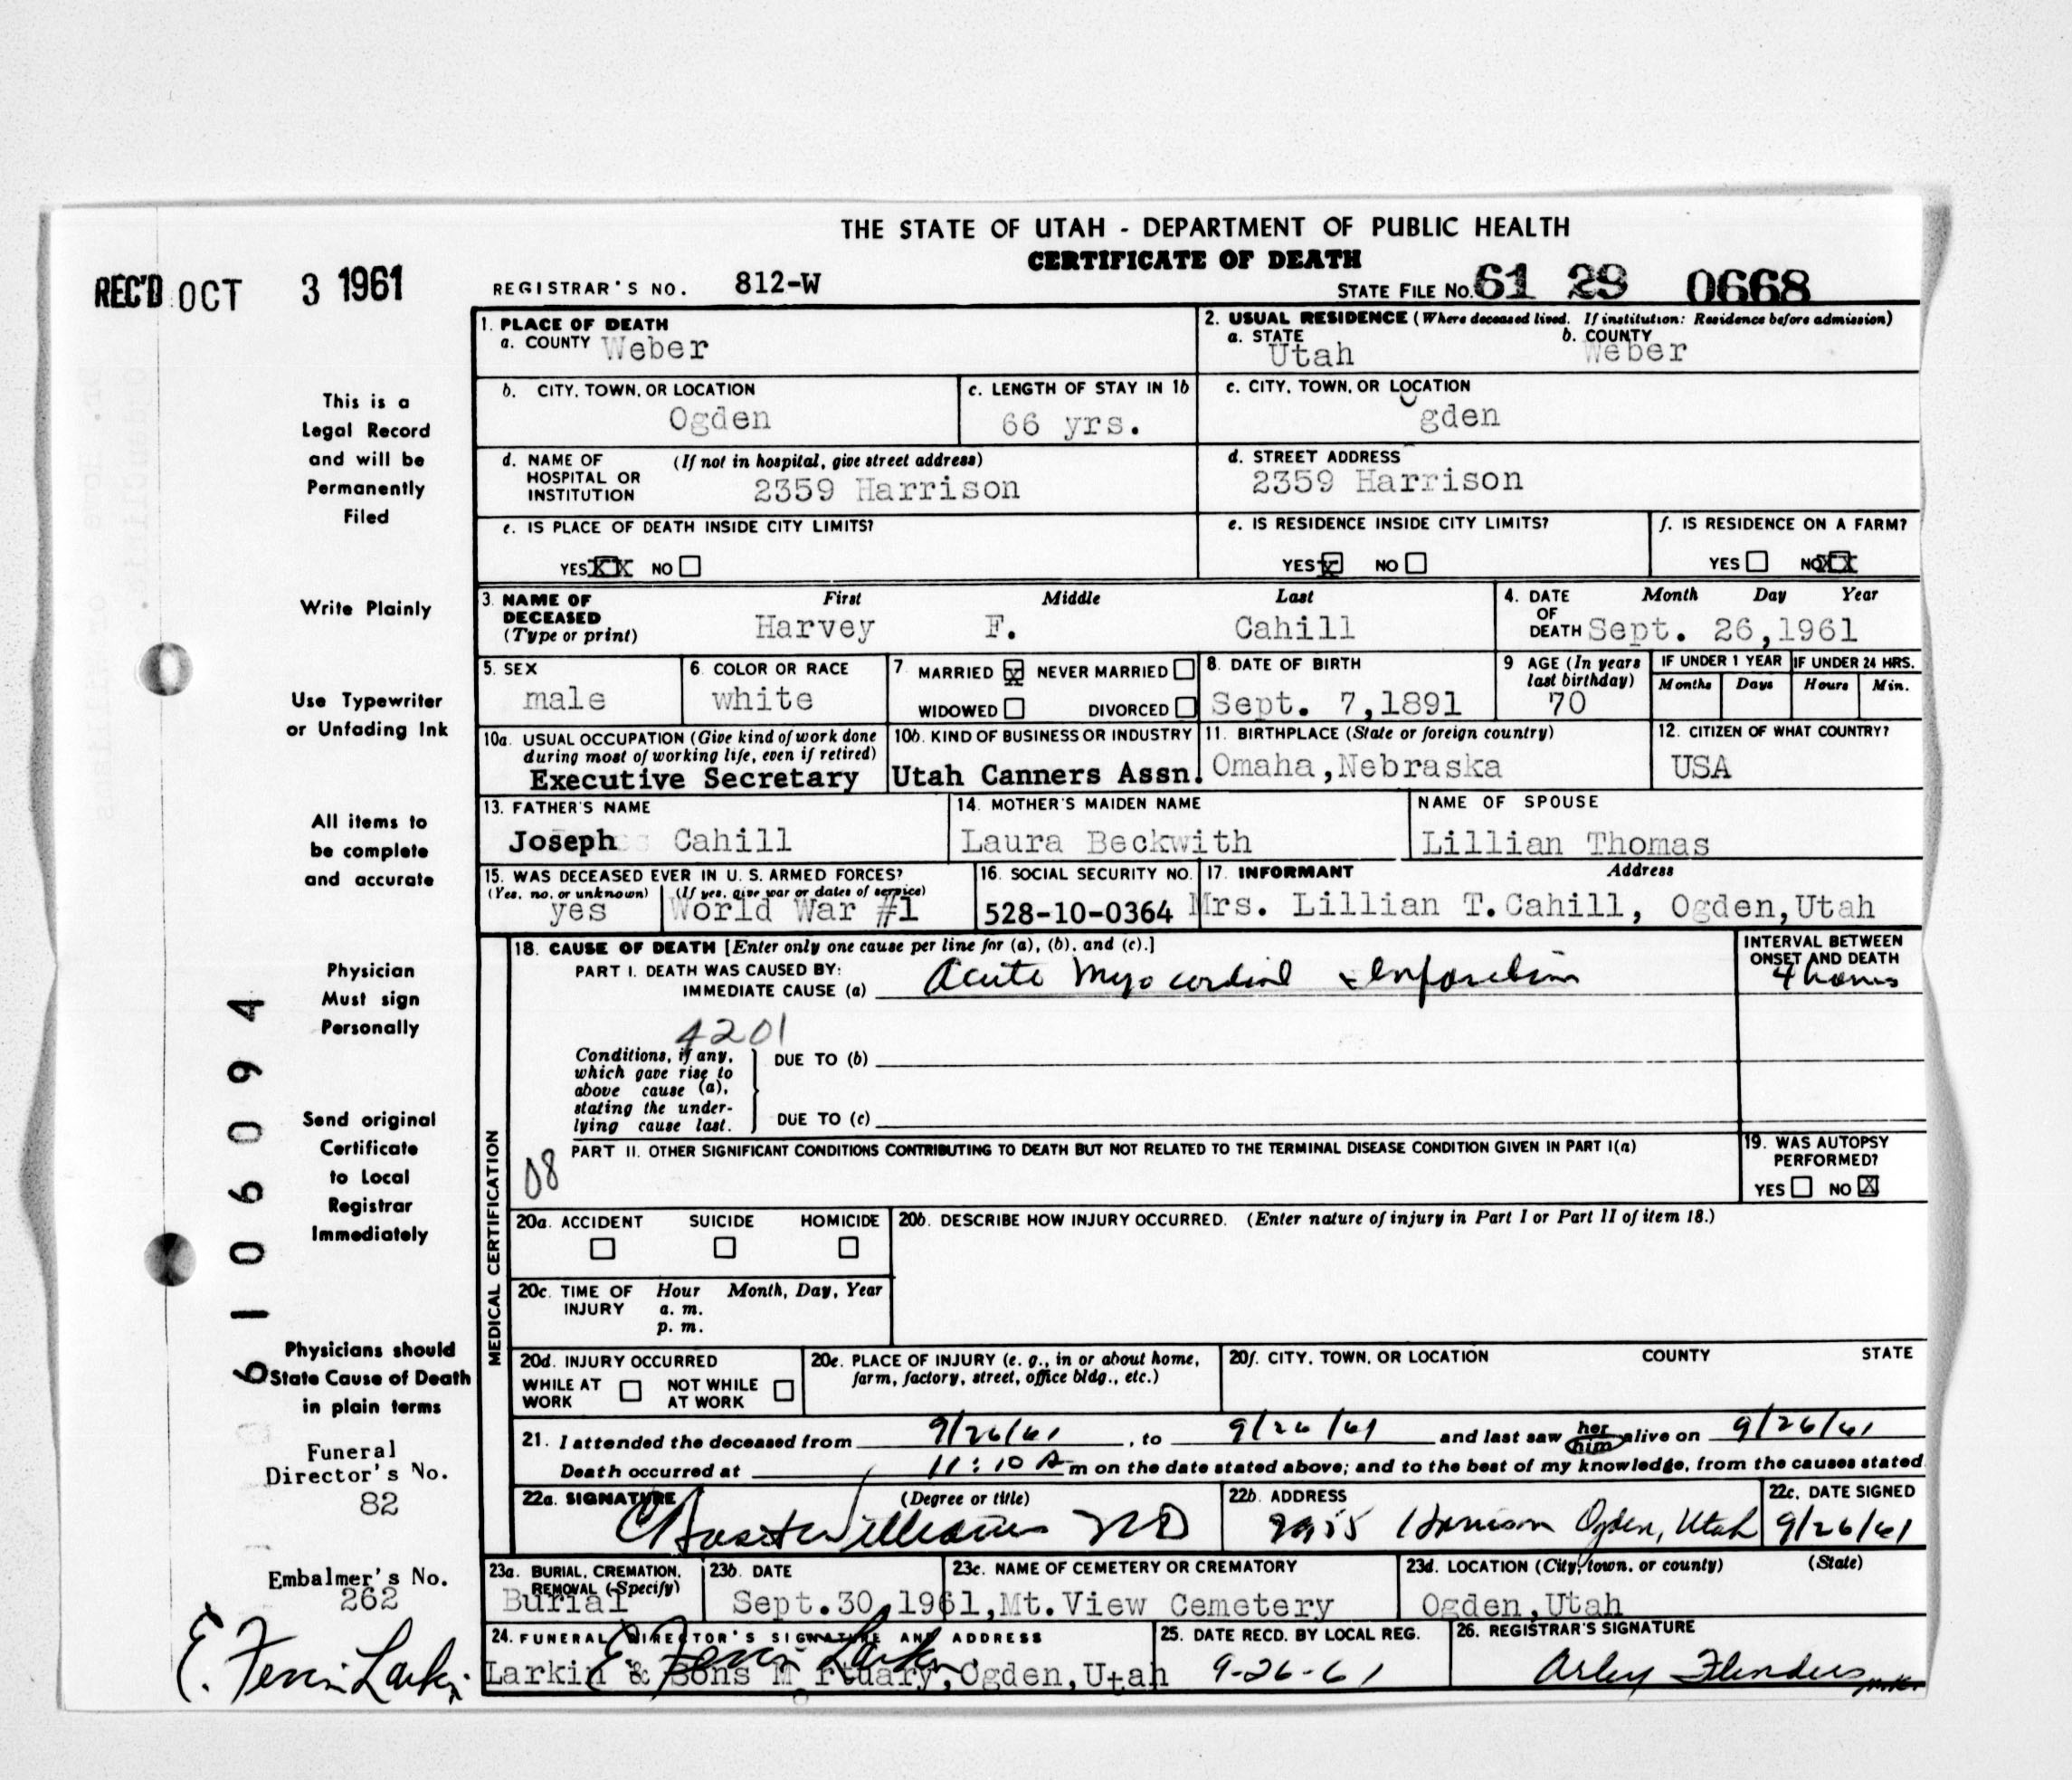 THE STATE OF UTAH - DEPARTMENT OF PUBLIC HEALTH
CERTIFICATE OF DEATH
REC'D OCT 3 1961
REGISTRAR'S NO. 812-W
STATE FILE NO. 61 29 0668
This is a
Legal Record
and will be
Permanently
Filed
Write Plainly
Use Typewriter
or Unfading Ink
All items to
be complete
and accurate
Physician
Must sign
Personally
Send original
Certificate
to Local
Registrar
Immediately
Physicians should
State Cause of Death
in plain terms
Funeral
Director's No.
82
Embalmer's No.
262
E. Ferrin Larkin
6106094
1. PLACE OF DEATH
a. COUNTY Weber
2. USUAL RESIDENCE (Where deceased lived. If institution: Residence before admission)
a. STATE Utah b. COUNTY Weber
b. CITY, TOWN, OR LOCATION Ogden
c. LENGTH OF STAY IN 1b 66 yrs.
c. CITY, TOWN, OR LOCATION Ogden
d. NAME OF HOSPITAL OR INSTITUTION (If not in hospital, give street address) 2359 Harrison
d. STREET ADDRESS 2359 Harrison
e. IS PLACE OF DEATH INSIDE CITY LIMITS?
YES XX NO
e. IS RESIDENCE INSIDE CITY LIMITS?
YES X NO
f. IS RESIDENCE ON A FARM?
YES NO XX
3. NAME OF DECEASED (Type or print) First Middle Last
Harvey F. Cahill
4. DATE OF DEATH Month Day Year
Sept. 26,1961
5. SEX male
6. COLOR OR RACE white
7. MARRIED X NEVER MARRIED
WIDOWED DIVORCED
8. DATE OF BIRTH Sept. 7,1891
9 AGE (In years last birthday) 70
IF UNDER 1 YEAR Months Days
IF UNDER 24 HRS. Hours Min.
10a. USUAL OCCUPATION (Give kind of work done during most of working life, even if retired)
Executive Secretary
10b. KIND OF BUSINESS OR INDUSTRY
Utah Canners Assn.
11. BIRTHPLACE (State or foreign country)
Omaha,Nebraska
12. CITIZEN OF WHAT COUNTRY?
USA
13. FATHER'S NAME
Joseph Cahill
14. MOTHER'S MAIDEN NAME
Laura Beckwith
NAME OF SPOUSE
Lillian Thomas
15. WAS DECEASED EVER IN U. S. ARMED FORCES?
(Yes, no, or unknown) (If yes, give war or dates of service)
yes World War #1
16. SOCIAL SECURITY NO.
528-10-0364
17. INFORMANT Address
Mrs. Lillian T.Cahill, Ogden,Utah
MEDICAL CERTIFICATION
18. CAUSE OF DEATH [Enter only one cause per line for (a), (b), and (c).]
PART I. DEATH WAS CAUSED BY:
IMMEDIATE CAUSE (a) Acute Myocardial Infarction
INTERVAL BETWEEN ONSET AND DEATH
4 hours
4201
Conditions, if any,
which gave rise to
above cause (a),
stating the under-
lying cause last.
DUE TO (b)
DUE TO (c)
08
PART II. OTHER SIGNIFICANT CONDITIONS CONTRIBUTING TO DEATH BUT NOT RELATED TO THE TERMINAL DISEASE CONDITION GIVEN IN PART I(a)
19. WAS AUTOPSY PERFORMED?
YES NO X
20a. ACCIDENT SUICIDE HOMICIDE
20b. DESCRIBE HOW INJURY OCCURRED. (Enter nature of injury in Part I or Part II of item 18.)
20c. TIME OF INJURY Hour Month, Day, Year
a. m.
p. m.
20d. INJURY OCCURRED
WHILE AT WORK NOT WHILE AT WORK
20e. PLACE OF INJURY (e. g., in or about home, farm, factory, street, office bldg., etc.)
20f. CITY, TOWN, OR LOCATION COUNTY STATE
21. I attended the deceased from 9/26/61, to 9/26/61 and last saw her him alive on 9/26/61
Death occurred at 11:10 A m on the date stated above; and to the best of my knowledge, from the causes stated
22a. SIGNATURE (Degree or title)
Williams MD
22b. ADDRESS
Harrison Ogden, Utah
22c. DATE SIGNED
9/26/61
23a. BURIAL, CREMATION, REMOVAL (Specify)
Burial
23b. DATE
Sept.30,1961,
23c. NAME OF CEMETERY OR CREMATORY
Mt.View Cemetery
23d. LOCATION (City, town, or county) (State)
Ogden,Utah
24. FUNERAL DIRECTOR'S SIGNATURE AND ADDRESS
E. Ferrin Larkin
Larkin & Sons Mortuary,Ogden,Utah
25. DATE RECD. BY LOCAL REG.
9-26-61
26. REGISTRAR'S SIGNATURE
Arley Flinders